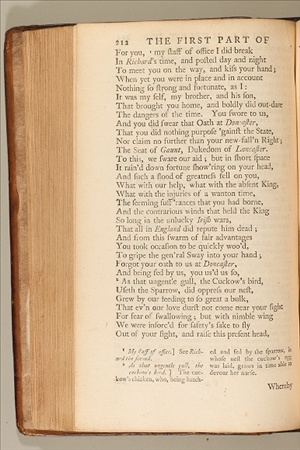 212 THE FIRST PART OF
For you, ¹ my ſtaff of office I did break
In Richard's time, and poſted day and night
To meet you on the way, and kiſs your hand;
When yet you were in place and in account
Nothing ſo ſtrong and fortunate, as I:
It was my ſelf, my brother, and his ſon,
That brought you home, and boldly did out-dare
The dangers of the time. You ſwore to us,
And you did ſwear that Oath at Doncaſter,
That you did nothing purpoſe 'gainſt the State,
Nor claim no further than your new-fall'n Right;
The Seat of Gaunt, Dukedom of Lancaſter.
To this, we ſware our aid; but in ſhort ſpace
It rain'd down fortune ſhow'ring on your head,
And ſuch a flood of greatneſs fell on you,
What with our help, what with the abſent King,
What with the injuries of a wanton time,
The ſeeming ſuff'rances that you had borne,
And the contrarious winds that held the King
So long in the unlucky Iriſh wars,
That all in England did repute him dead;
And from this ſwarm of fair advantages
You took occaſion to be quickly woo'd,
To gripe the gen'ral Sway into your hand;
Forgot your oath to us at Doncaſter,
And being fed by us, you us'd us ſo,
² As that ungentle gull, the Cuckow's bird,
Uſeth the Sparrow, did oppreſs our neſt,
Grew by our feeding to ſo great a bulk,
That ev'n our love durſt not come near your ſight
For fear of ſwallowing; but with nimble wing
We were inforc'd for ſafety's ſake to fly
Out of your ſight, and raiſe this preſent head,
¹ My ſtaff of office.] See Richard the ſecond.
² As that ungentle gull, the
cuckow's bird.] The cuckow's
chicken, who, being hatch-
ed and fed by the ſparrow, in
whoſe neſt the cuckow's egg
was laid, grows in time able to
devour her nurſe.
Whereby